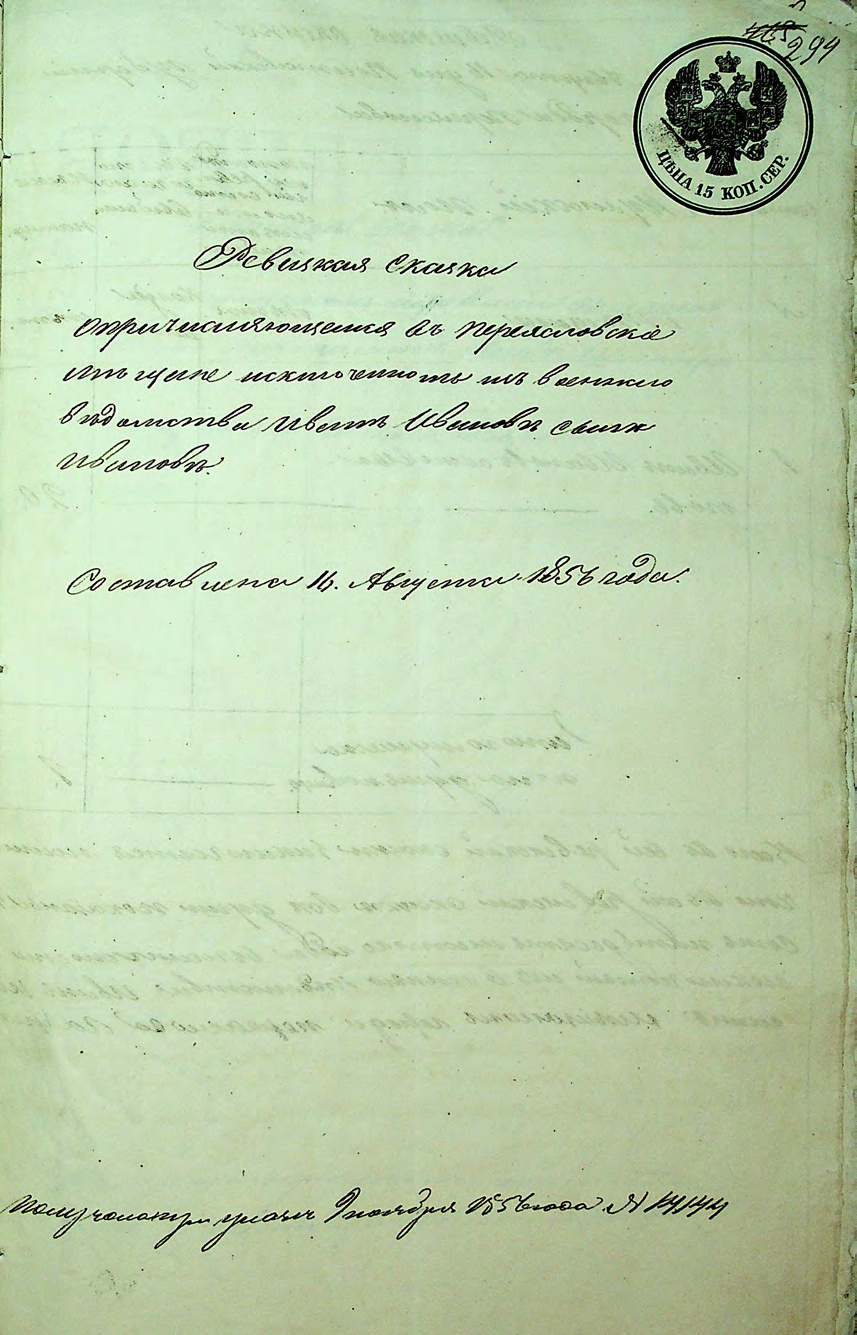 294
ЦѢНА 15 КОП. СЕР.
Ревизкая сказка
опричисляющемся въ переясловскіе
мѣщане исключенномъ изъ военнаго
вѣдомства Иванѣ Ивановѣ сынѣ
Ивановѣ.
Составлена 16. Августа 1856 года.
9 ноября 1856 года № 14144